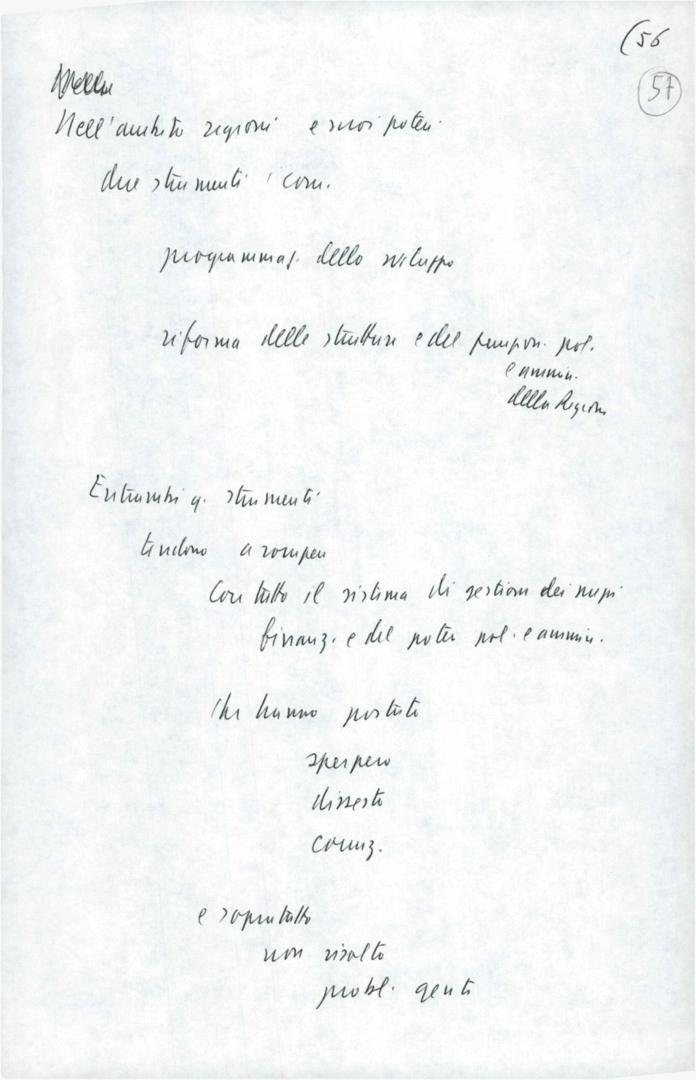 (56
57
Nell'ambito regioni e suoi poteri
due strumenti i com.
programmaz. dello sviluppo
riforma delle strutture e del funzion. pol.
e ammin.
della Regione
Entrambi q. strumenti
tendono a rompere
con tutto il sistema di gestione dei mezzi
finanz. e del potere pol. e ammin.
che hanno portato
sperpero
dissesto
corruz.
e soprattutto
non risolto
probl. gente